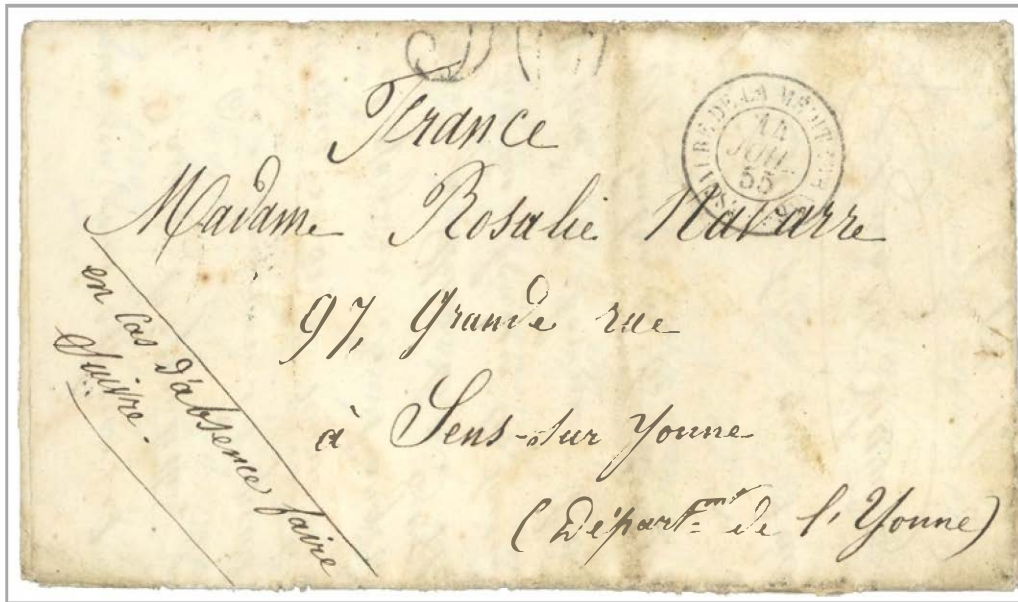 France
Madame Rosalie Navarre
97, Grande rue
à Sens-sur Yonne
(Départ.mt de l'Yonne)
en cas d'absence faire
Suivre.
DE LA
14
JUIL.
55